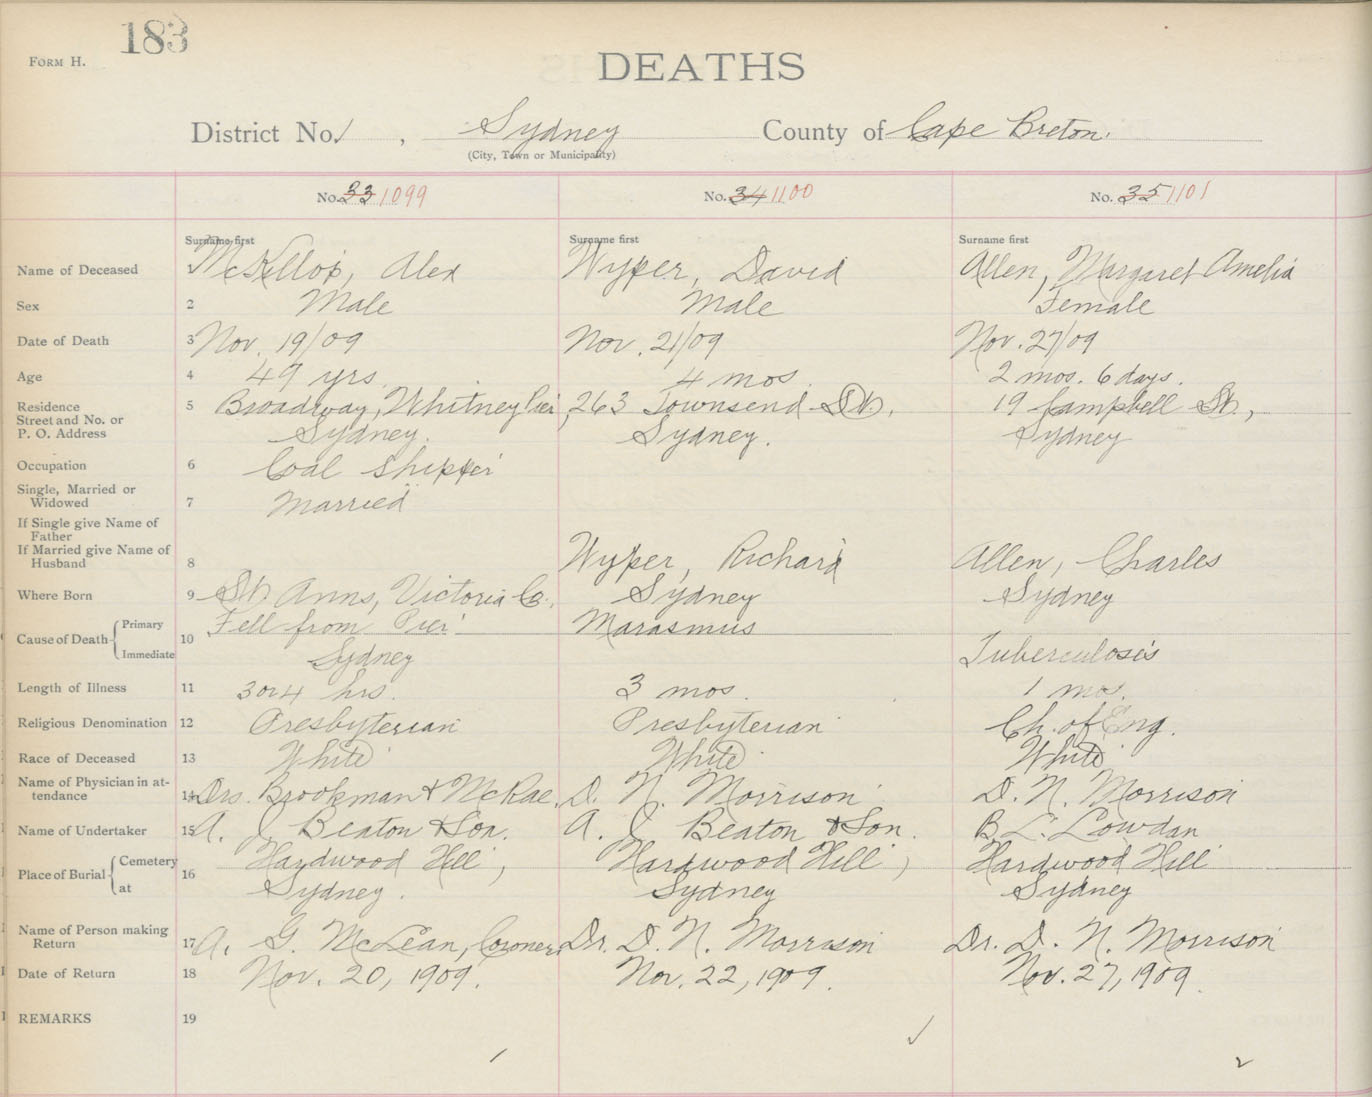 183
FORM H.
DEATHS
District No. 1, Sydney County of Cape Breton.
(City, Town or Municipality)
No. 33 1099 No. 34 1100 No. 35 1101
Surname first Surname first Surname first
Name of Deceased 1 McKillop, Alex Wyper, David Allen, Margaret Amelia
Sex 2 Male Male Female
Date of Death 3 Nov. 19/09 Nov. 21/09 Nov. 27/09
Age 4 49 yrs. 4 mos. 2 mos. 6 days.
Residence 5 Broadway, Whitney Pier, 263 Townsend St., 19 Campbell St.,
Street and No. or
P. O. Address Sydney. Sydney. Sydney
Occupation 6 Coal Shipper
Single, Married or
Widowed 7 Married
If Single give Name of
Father
If Married give Name of
Husband 8 Wyper, Richard Allen, Charles
Where Born 9 St. Anns, Victoria Co., Sydney Sydney
Cause of Death Primary 10 Fell from Pier Marasmus
Immediate Sydney Tuberculosis
Length of Illness 11 3 or 4 hrs. 3 mos. 1 mos.
Religious Denomination 12 Presbyterian Presbyterian Ch. of Eng.
Race of Deceased 13 White White White
Name of Physician in at-
tendance 14 Drs. Brookman & McRae. D. N. Morrison D. N. Morrison
Name of Undertaker 15 A. J. Beaton & Son. A. J. Beaton & Son. B. L. Lowdan
Place of Burial Cemetery 16 Hardwood Hill, Hardwood Hill, Hardwood Hill
at Sydney. Sydney Sydney
Name of Person making
Return 17 A. G. McLean, Coroner Dr. D. N. Morrison Dr. D. N. Morrison
Date of Return 18 Nov. 20, 1909. Nov. 22, 1909. Nov. 27, 1909.
REMARKS 19